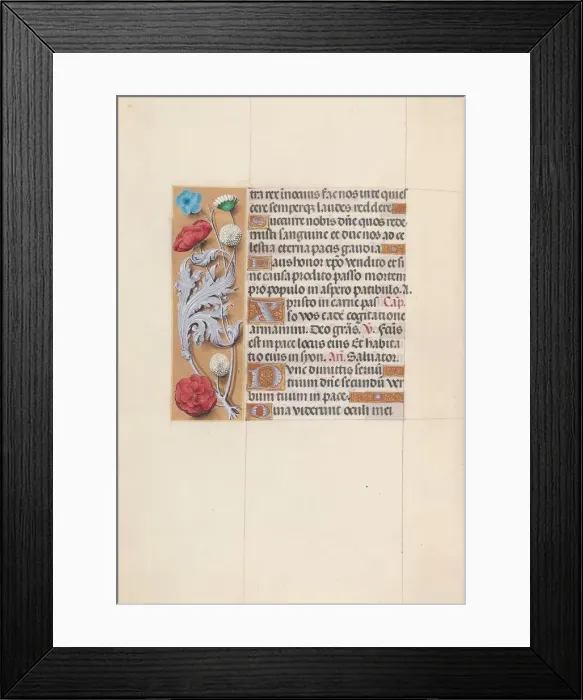 tra rex in oculis fac nos in te quies
cere semperq; laudes reddere
Succurre nobis dñe quos rede
misti sanguine et duc nos ad ce
lestia eterna pacis gaudia
Laus honor xpo vendito et si
ne causa prodito passo mortem
pro populo in aspero patibulo. A.
Xpristo in carne pas Cap.
so vos eadē cogitatione
armamini. Deo grãs. V. Fctũs
est in pace locus eius Et habita
tio eius in syon. Añ. Saluator.
Nunc dimittis seruũ
tuum dñe secundũ ver
bum tuum in pace.
Quia viderunt oculi mei